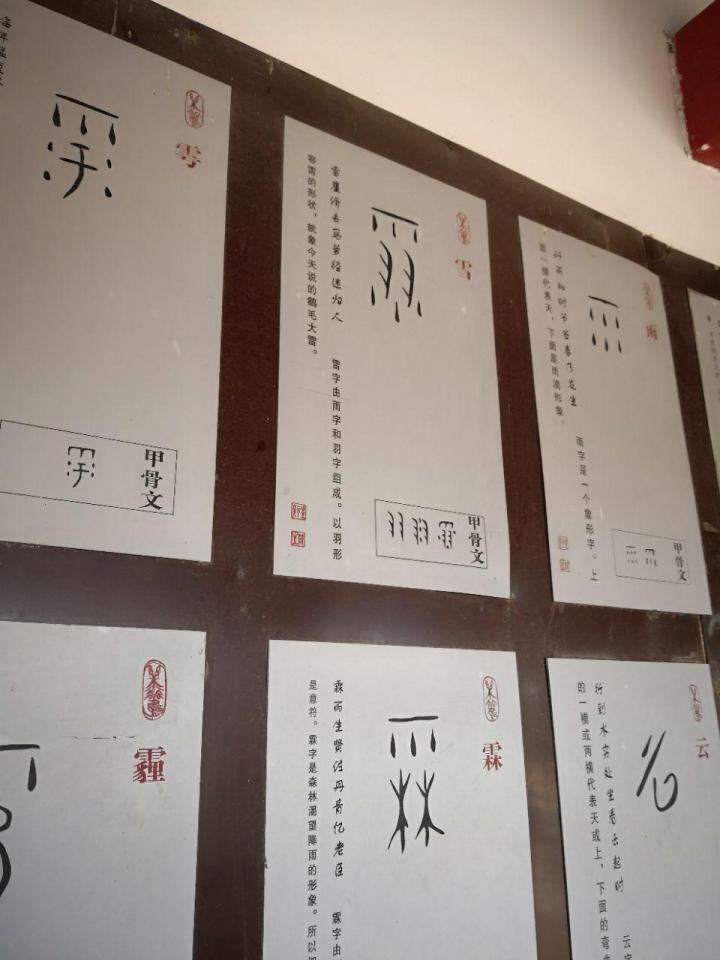 雨
雨字是一个象形字。上
面一横代表天，下面是雨滴形象。
甲骨文
雪
雪字由雨字和羽字组成。以羽形
容雪的形状，就象今天说的鹅毛大雪。
甲骨文
雩
甲骨文
云
行到水穷处坐看云起时
云字
的一横或两横代表天或上，下面的弯
霖
霖雨生贤佐丹青忆老臣
霖字由
是意符。霖字是森林渴望降雨的形象。所以
霾